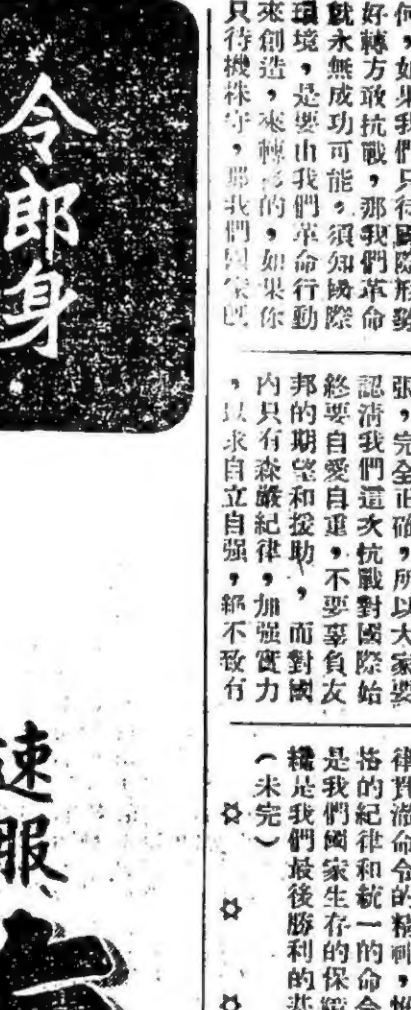 何，如果我們只待國際形勢
好轉方敢抗戰，那我們革命
就永無成功可能。須知國際
環境，是要由我們革命行動
來創造，來轉移的，如果你
只待機株守，那我們國家
張，完全正確，所以大家要
認清我們這次抗戰對國際始
終要自愛自重，不要辜負友
邦的期望和援助，而對國
內只有森嚴紀律，加強實力
，以求自立自强，絕不致有
律貫澈命令的精神，惟
格的紀律和統一的命令
是我們國家生存的保障
纔是我們最後勝利的
（未完）
令郎身
速服